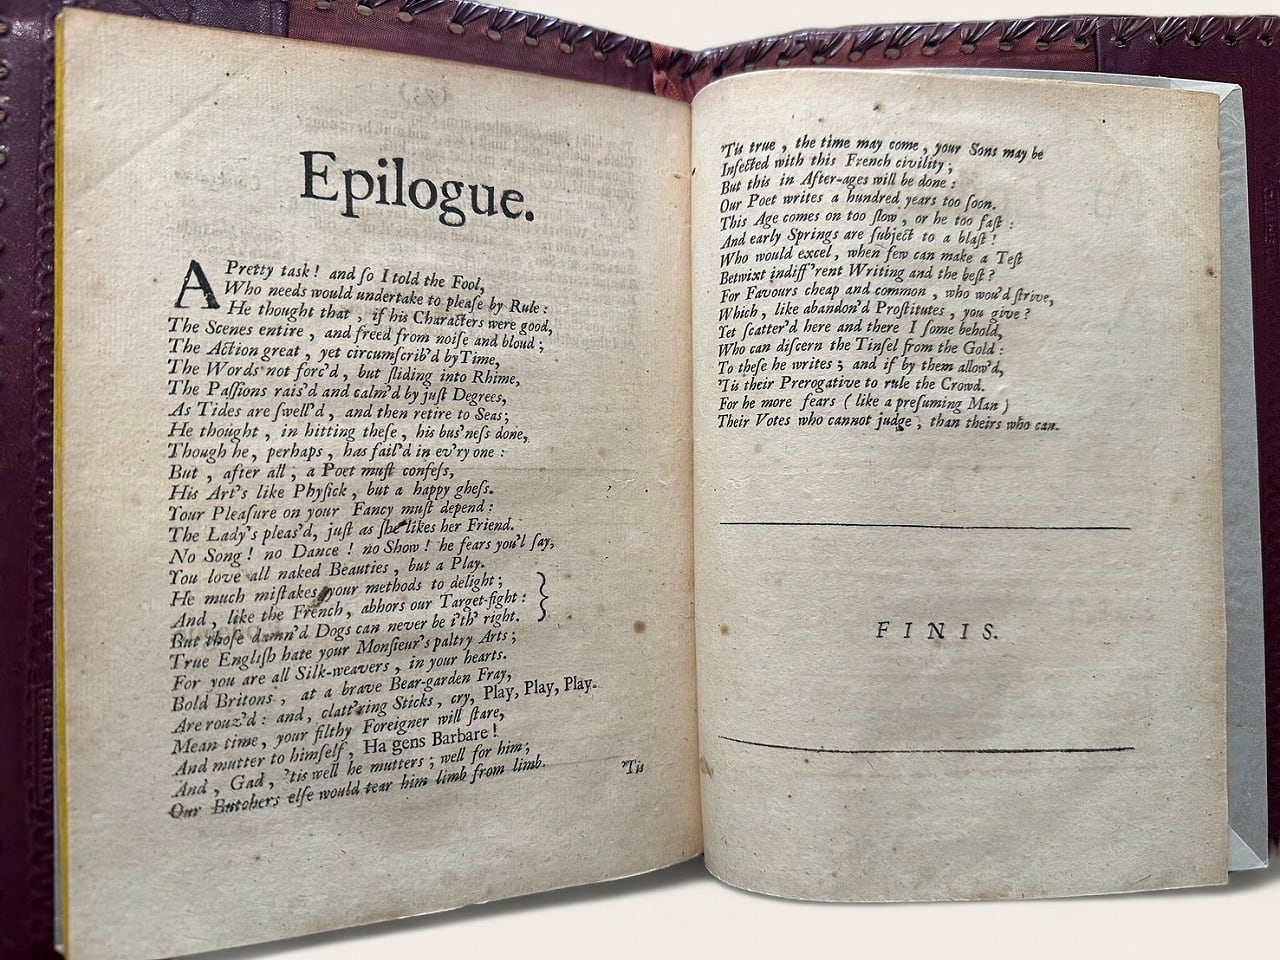 Epilogue.
A Pretty task! and ſo I told the Fool,
Who needs would undertake to pleaſe by Rule:
He thought that, if his Characters were good,
The Scenes entire, and freed from noiſe and bloud;
The Action great, yet circumſcrib'd by Time,
The Words not forc'd, but ſliding into Rhime,
The Paſſions rais'd and calm'd by juſt Degrees,
As Tides are ſwell'd, and then retire to Seas;
He thought, in hitting theſe, his bus'neſs done,
Though he, perhaps, has fail'd in ev'ry one:
But, after all, a Poet muſt confeſs,
His Art's like Phyſick, but a happy gheſs.
Your Pleaſure on your Fancy muſt depend:
The Lady's pleas'd, juſt as ſhe likes her Friend.
No Song! no Dance! no Show! he fears you'l ſay,
You love all naked Beauties, but a Play.
He much miſtakes your methods to delight;
And, like the French, abhors our Target-fight:
But thoſe damn'd Dogs can never be i'th' right.
True Engliſh hate your Monſieur's paltry Arts;
For you are all Silk-weavers, in your hearts.
Bold Britons, at a brave Bear-garden Fray,
Are rouz'd: and, clatt'ring Sticks, cry, Play, Play, Play.
Mean time, your filthy Foreigner will ſtare,
And mutter to himſelf, Ha gens Barbare!
And, Gad, 'tis well he mutters; well for him;
Our Butchers elſe would tear him limb from limb.
'Tis
'Tis true, the time may come, your Sons may be
Infected with this French civility;
But this in After-ages will be done:
Our Poet writes a hundred years too ſoon.
This Age comes on too ſlow, or he too faſt:
And early Springs are ſubject to a blaſt!
Who would excel, when few can make a Teſt
Betwixt indiff'rent Writing and the beſt?
For Favours cheap and common, who wou'd ſtrive,
Which, like abandon'd Proſtitutes, you give?
Yet ſcatter'd here and there I ſome behold,
Who can diſcern the Tinſel from the Gold:
To theſe he writes; and if by them allow'd,
'Tis their Prerogative to rule the Crowd.
For he more fears (like a preſuming Man)
Their Votes who cannot judge, than theirs who can.
FINIS.